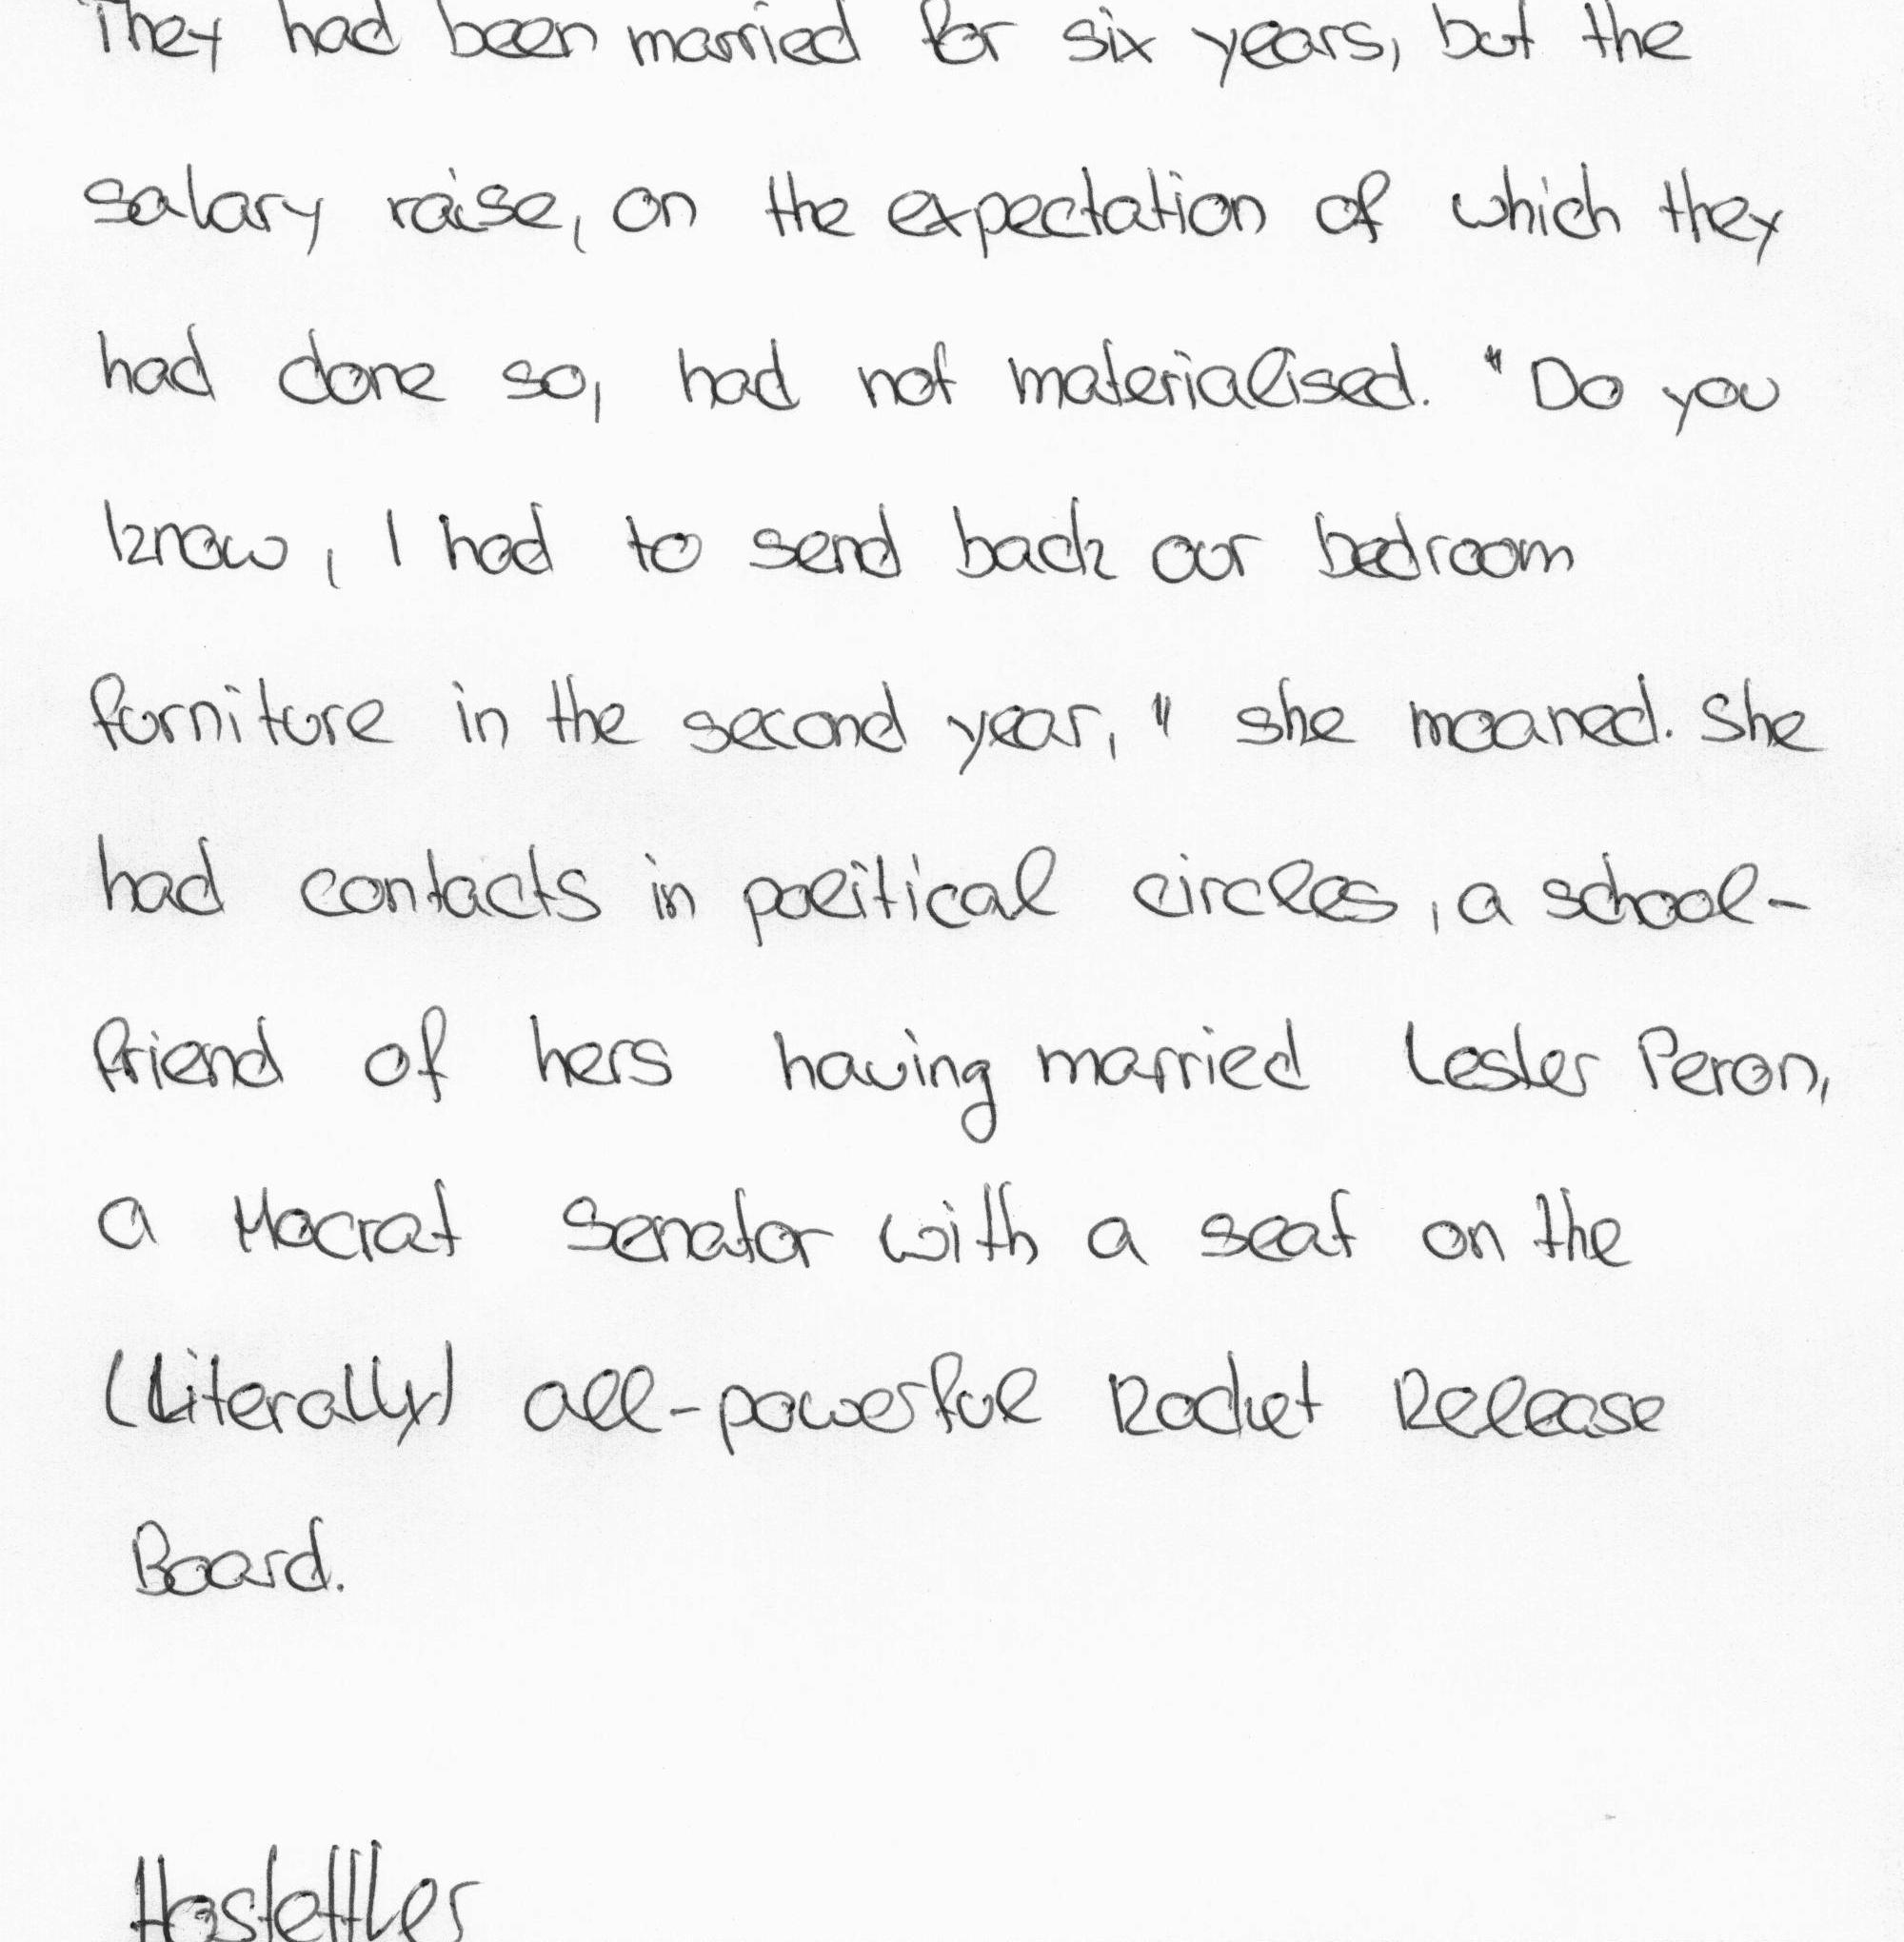 They had been married for six years, but the
salary raise, on the expectation of which they
had done so, had not materialised. "Do you
know, I had to send back our bedroom
furniture in the second year," she moaned. She
had contacts in political circles, a school-
friend of hers having married Lester Peron,
a Mocrat Senator with a seat on the
(literally) all-powerful Rocket Release
Board.
Hostettler